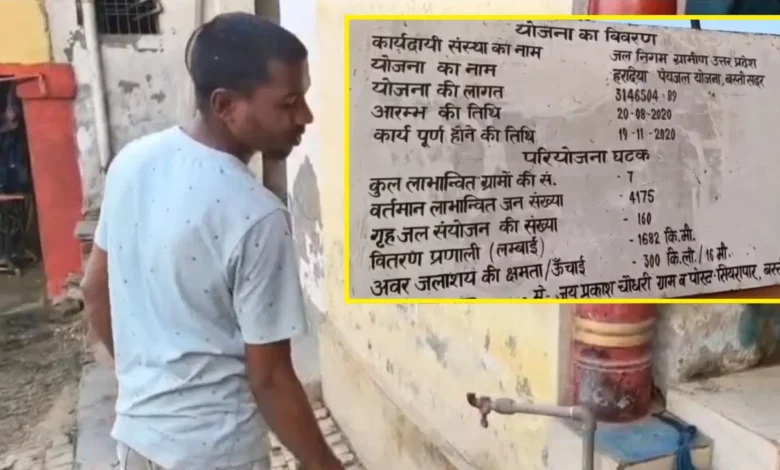 योजना का विवरण
कार्यदायी संस्था का नाम जल निगम ग्रामीण उत्तर प्रदेश
योजना का नाम हरदिया पेयजल योजना, बस्ती सदर
योजना की लागत 3146504.89
आरम्भ की तिथि 20-08-2020
कार्य पूर्ण होने की तिथि 19-11-2020
परियोजना घटक
कुल लाभान्वित ग्रामों की सं. - 7
वर्तमान लाभान्वित जन संख्या - 4175
गृह जल संयोजन की संख्या - 160
वितरण प्रणाली (लम्बाई) - 1682 कि.मी.
अवर जलाशय की क्षमता/ऊँचाई - 300 कि.ली./16 मी.
मे. जय प्रकाश चौधरी ग्राम व पोस्ट-सियरापार,